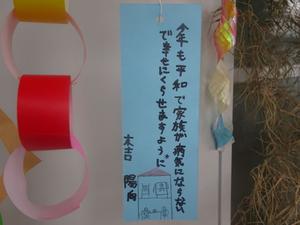 今年も平和で家族が病気にならない
で幸せにくらせますように
末吉 陽向